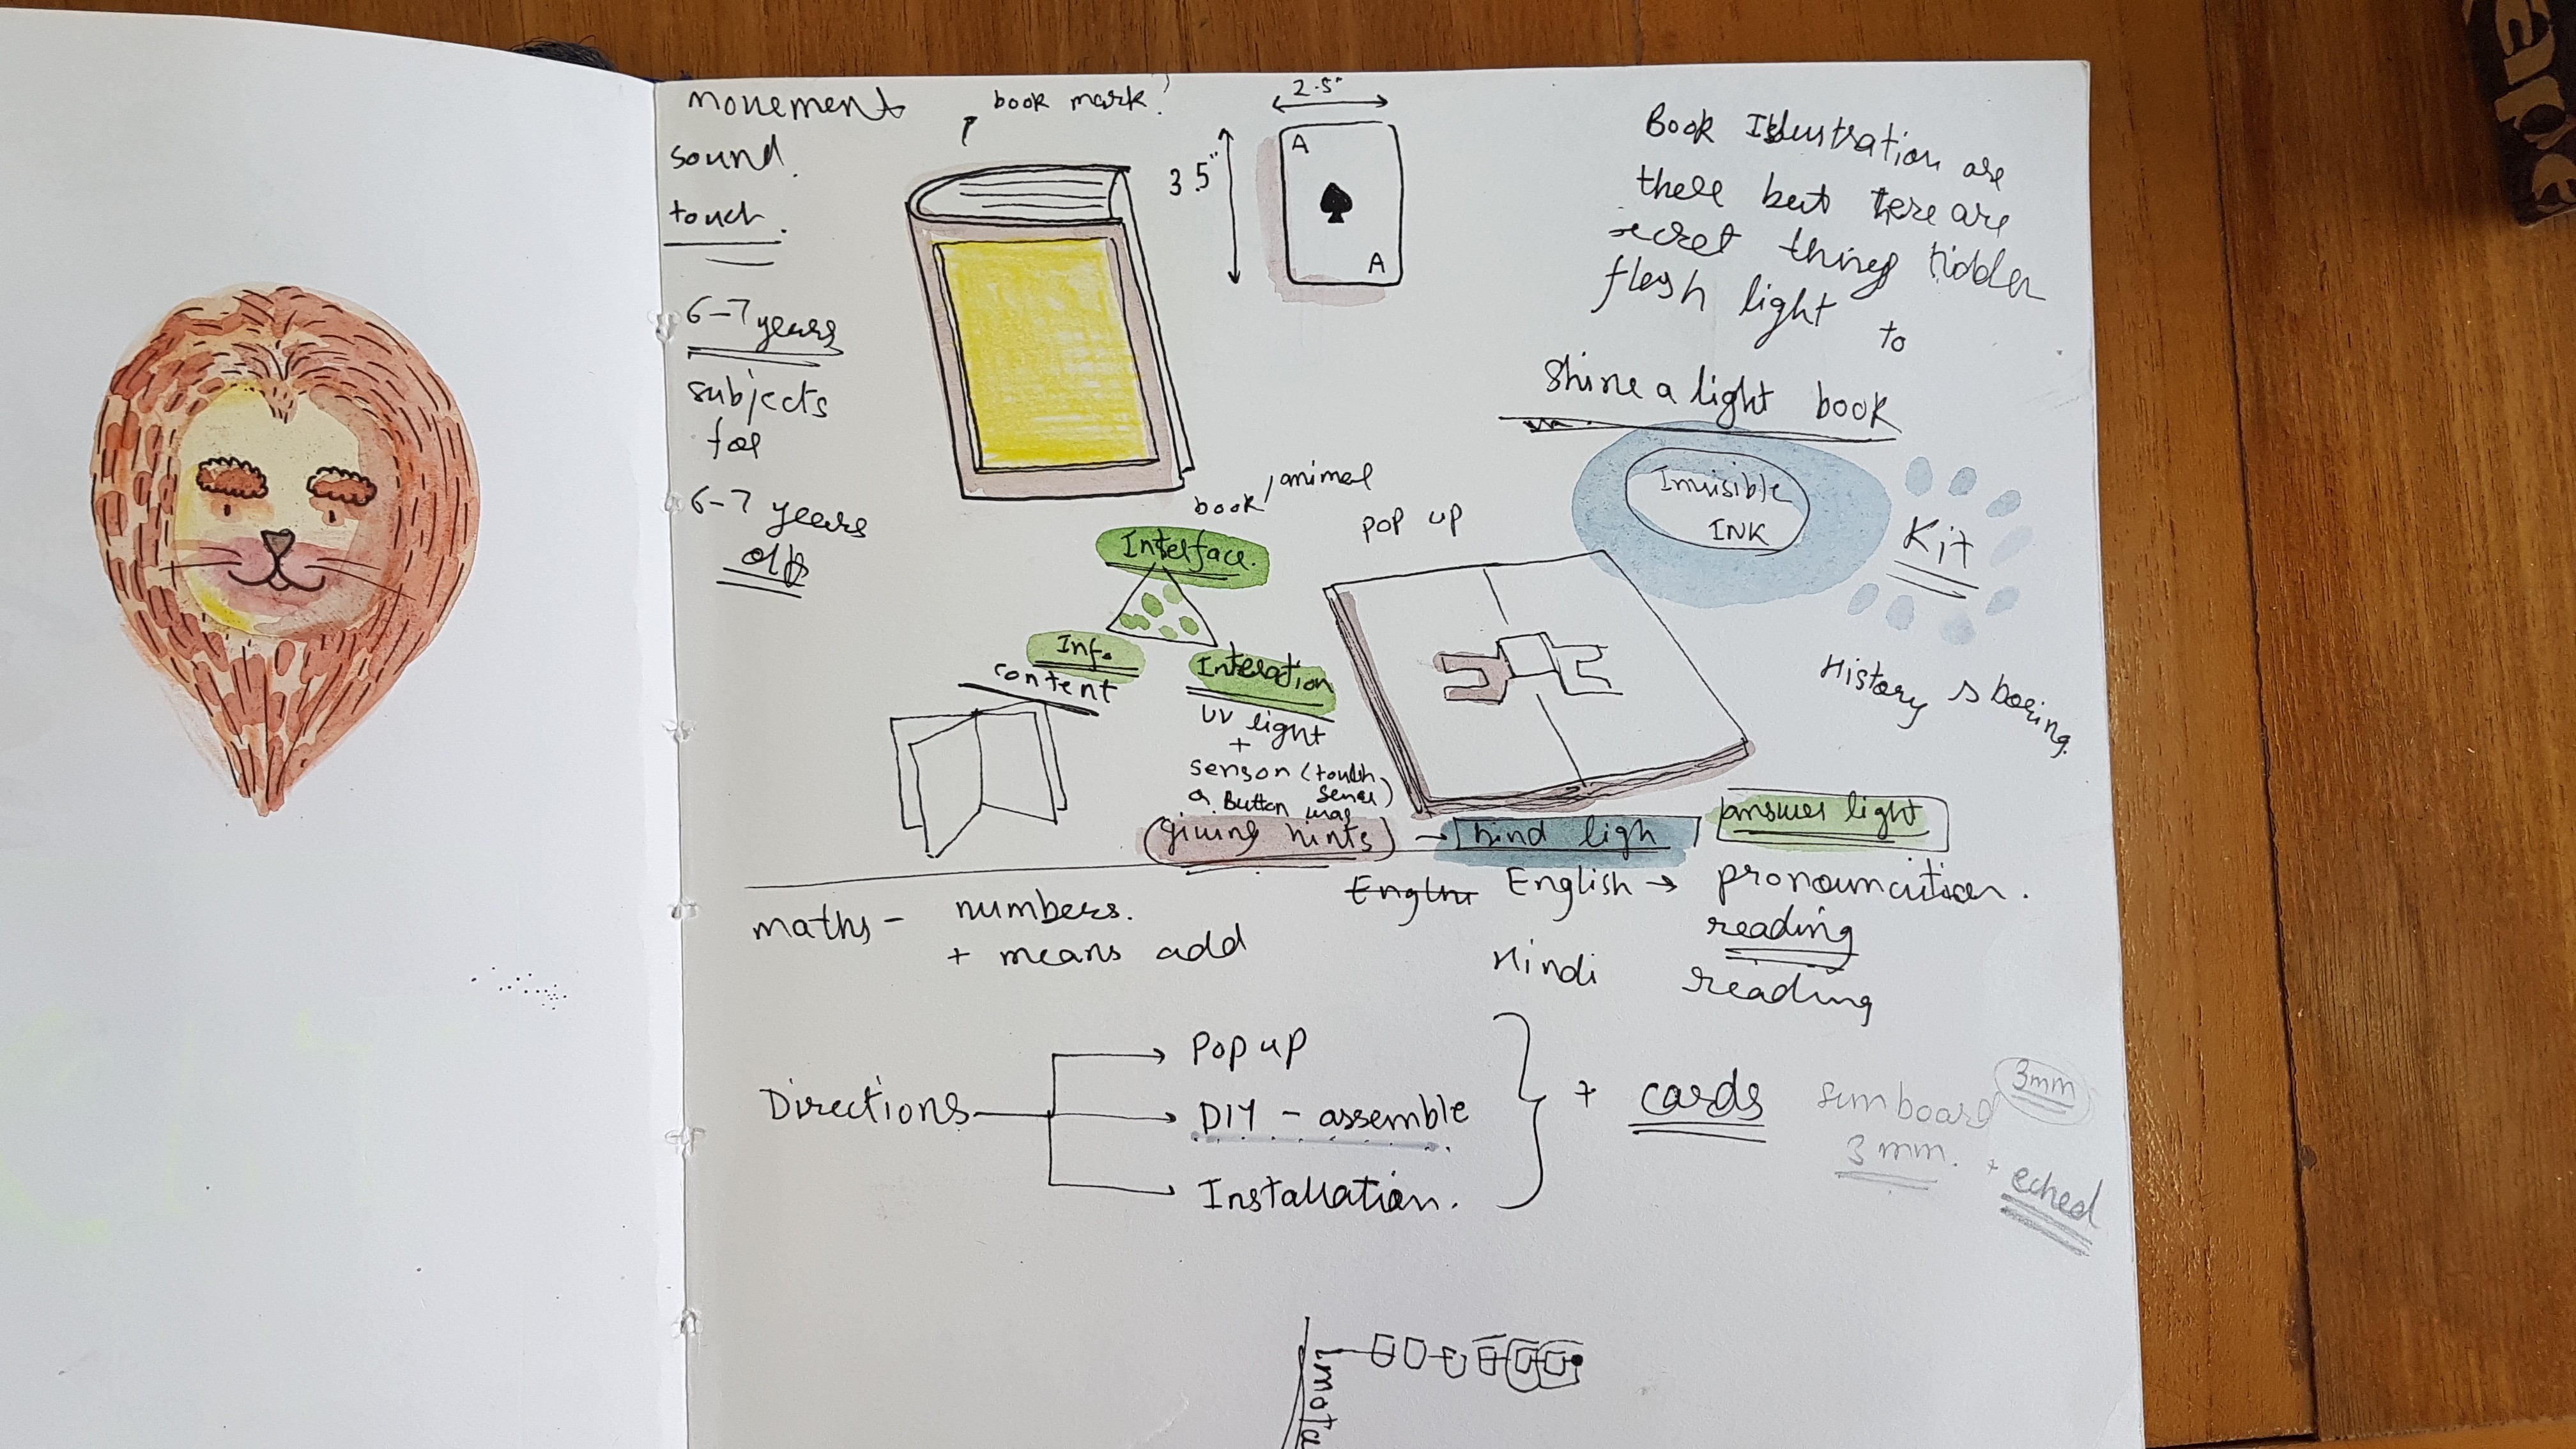 movement
sound.
touch.
6-7 years
subjects
for
6-7 years
old
book mark?
2.5"
3.5"
A
A
Book Illustration are
there but tere are
secret things hidden
flesh light to
Shine a light book
Invisible
INK
Kit
History is boring.
book / animal
Interface.
Info.
content
Interation
UV light
+
senson (touch
senser)
or Button
pop up
giving hints
hind ligh
answer light
maths - numbers.
+ means add
English → pronouncition.
reading
Hindi reading
Directions
Pop up
DIY - assemble
Installation.
+ cards
sunboard
3mm
3 mm. + eched